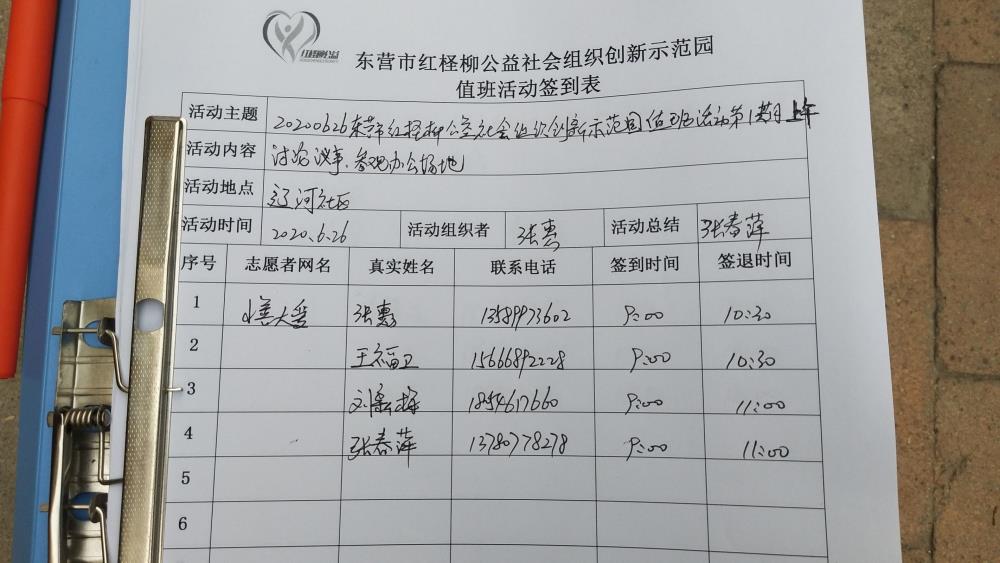 东营市红柽柳公益社会组织创新示范园
值班活动签到表
活动主题 20200626东营市红柽柳公益社会组织创新示范园值班活动第1期 上午
活动内容 讨论议事、参观办公场地
活动地点 辽河社区
活动时间 2020.6.26 活动组织者 张惠 活动总结 张春萍
序号 志愿者网名 真实姓名 联系电话 签到时间 签退时间
1 大爱 张惠 13589973602 9:00 10:30
2 王福卫 15666892228 9:00 10:30
3 刘 1854617660 9:00 11:00
4 张春萍 13780778278 9:00 11:00
5
6